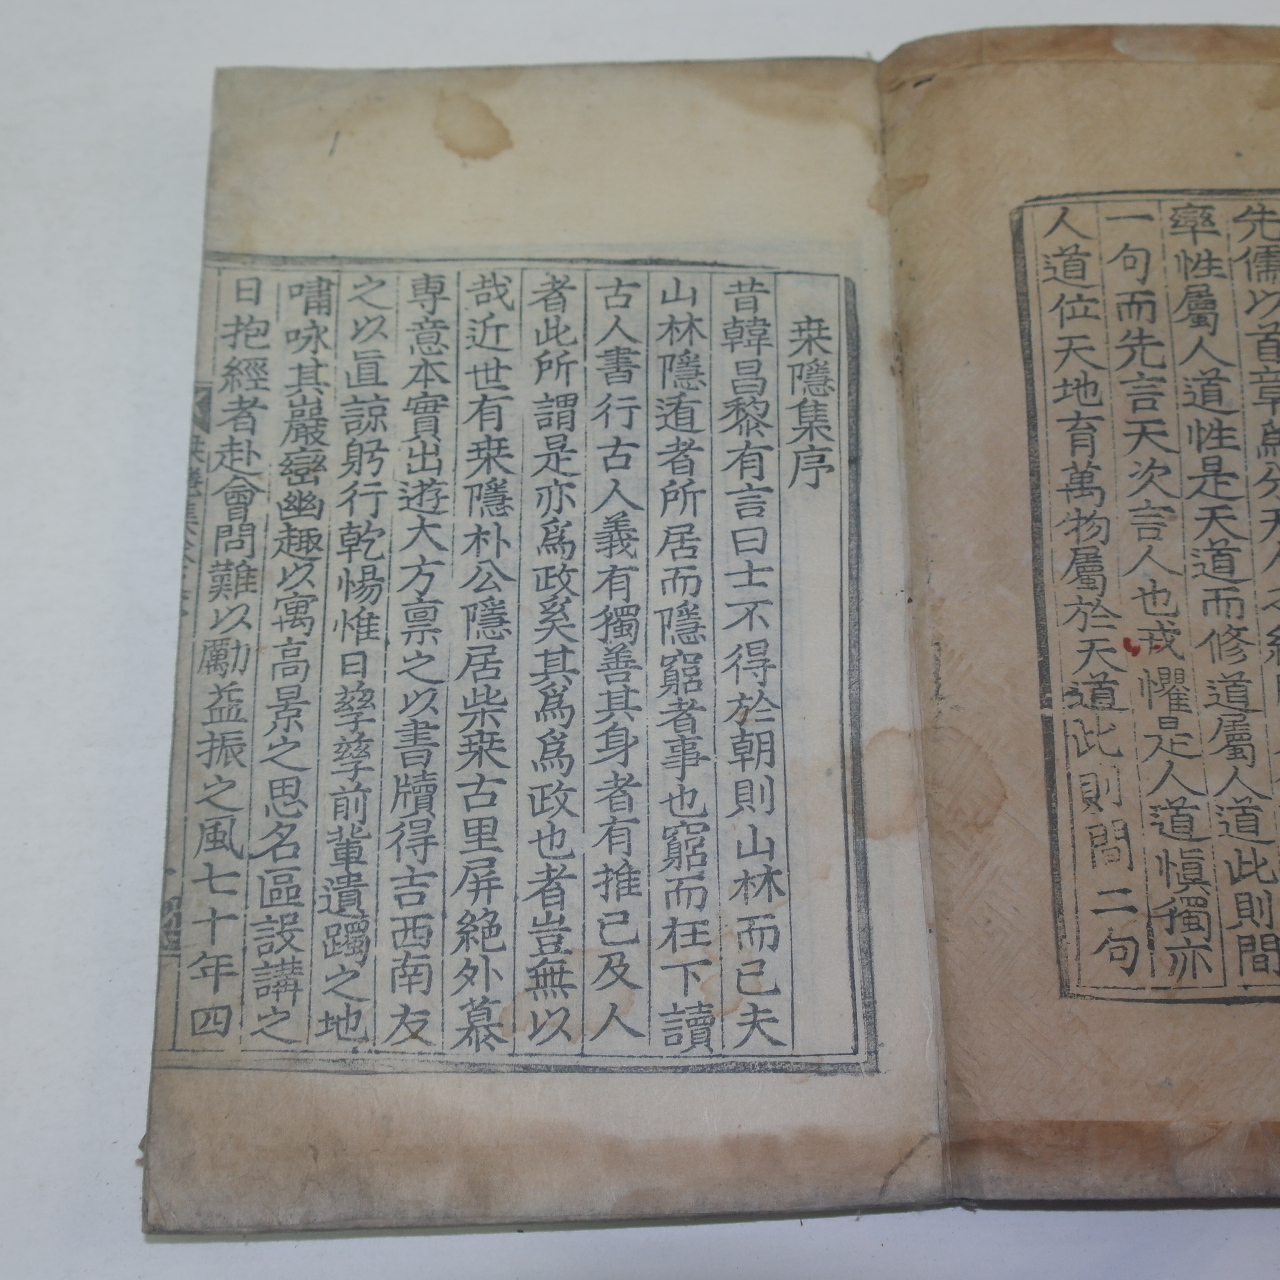 先儒以首章爲分天人
率性屬人道性是天道而修道屬人道此則間
一句而先言天次言人也戒懼是人道愼獨亦
人道位天地育萬物屬於天道此則間二句
桒隱集序
昔韓昌黎有言曰士不得於朝則山林而已夫
山林隱遁者所居而隱窮者事也窮而在下讀
古人書行古人義有獨善其身者有推己及人
者此所謂是亦爲政奚其爲爲政也者豈無以
哉近世有桒隱朴公隱居柴桒古里屏絶外慕
專意本實出遊大方禀之以書牘得吉西南友
之以直諒躬行乾惕惟日孶孶前輩遺躅之地
嘯咏其巖巒幽趣以寓高景之思名區設講之
日抱經者赴會問難以勵益振之風七十年四
桒隱集